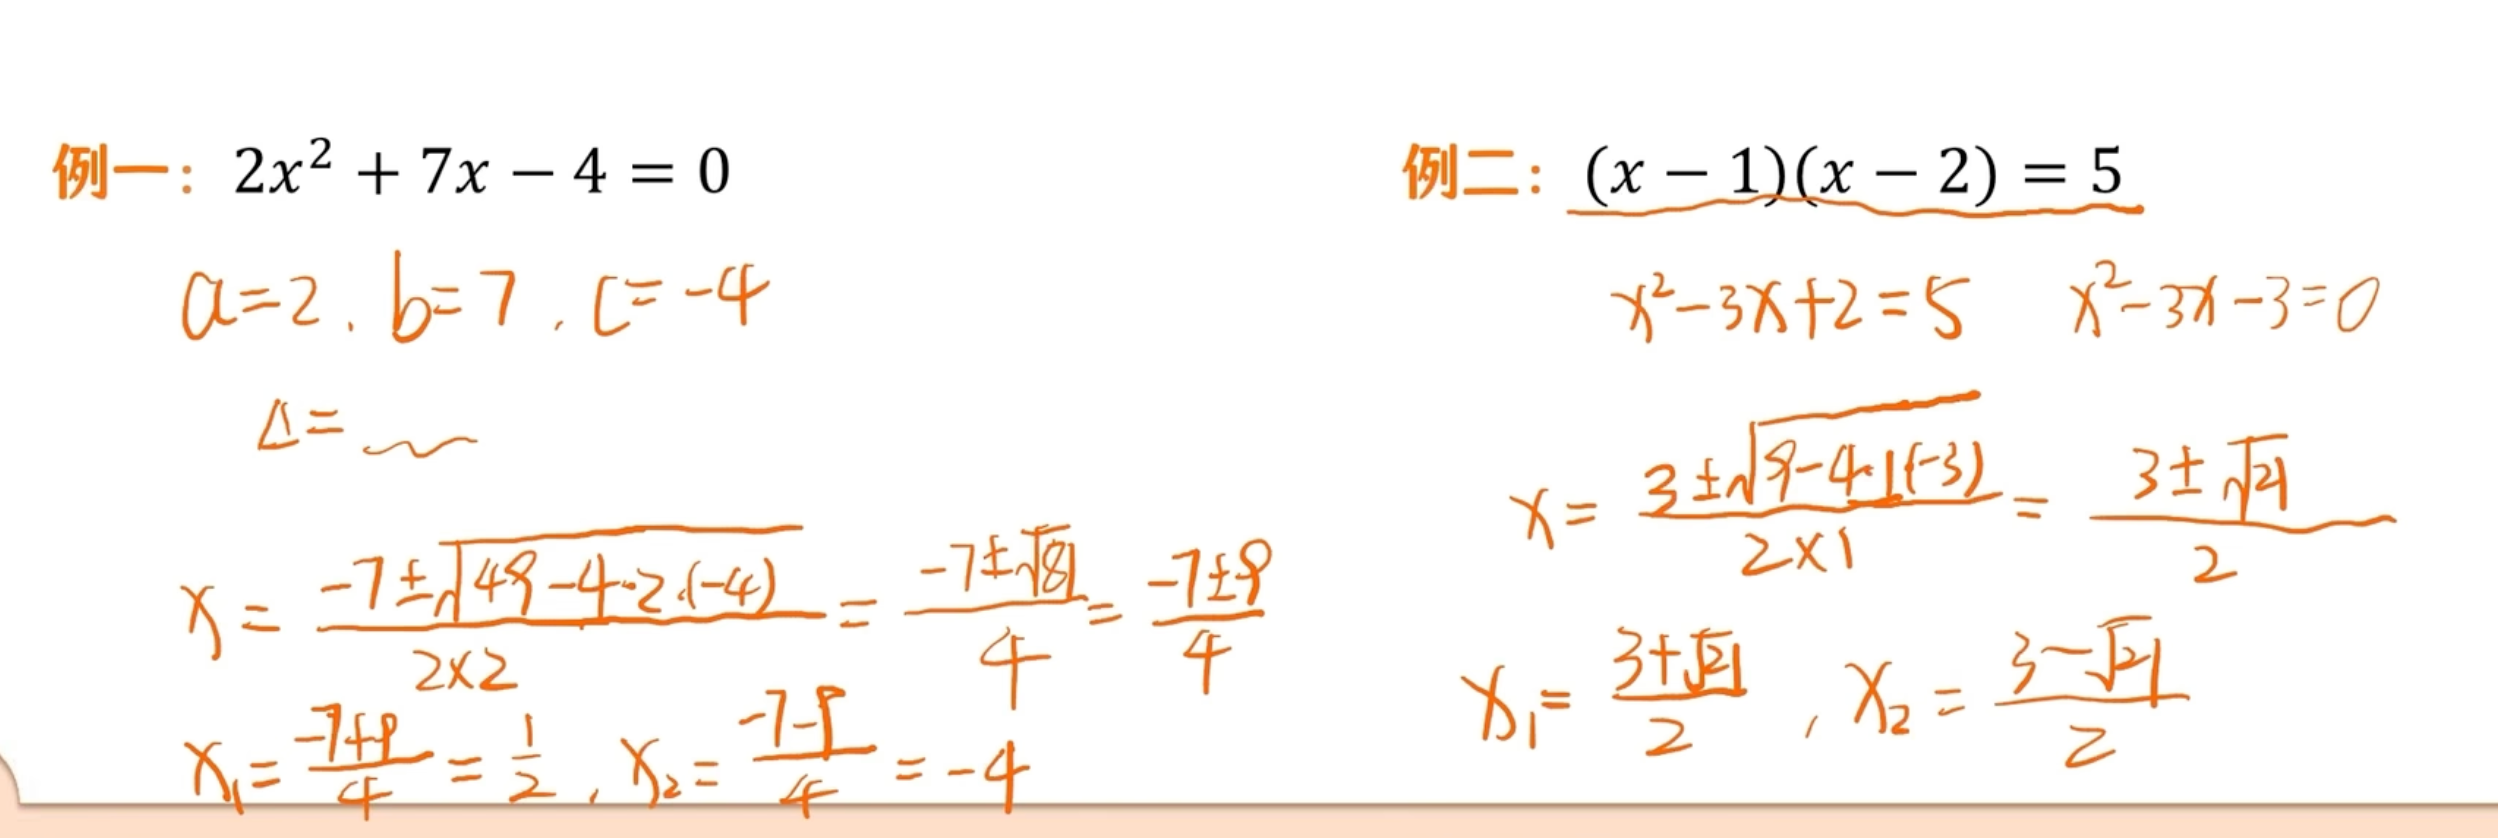 例一：2x² + 7x − 4 = 0
a=2, b=7, c=-4
Δ=
x = (-7±√(49-4·2·(-4)))/(2×2) = (-7±√81)/4 = (-7±9)/4
x₁ = (-7+9)/4 = 1/2, x₂ = (-7-9)/4 = -4
例二：(x − 1)(x − 2) = 5
x²-3x+2=5 x²-3x-3=0
x = (3±√(9-4·1·(-3)))/(2×1) = (3±√21)/2
x₁ = (3+√21)/2, x₂ = (3-√21)/2